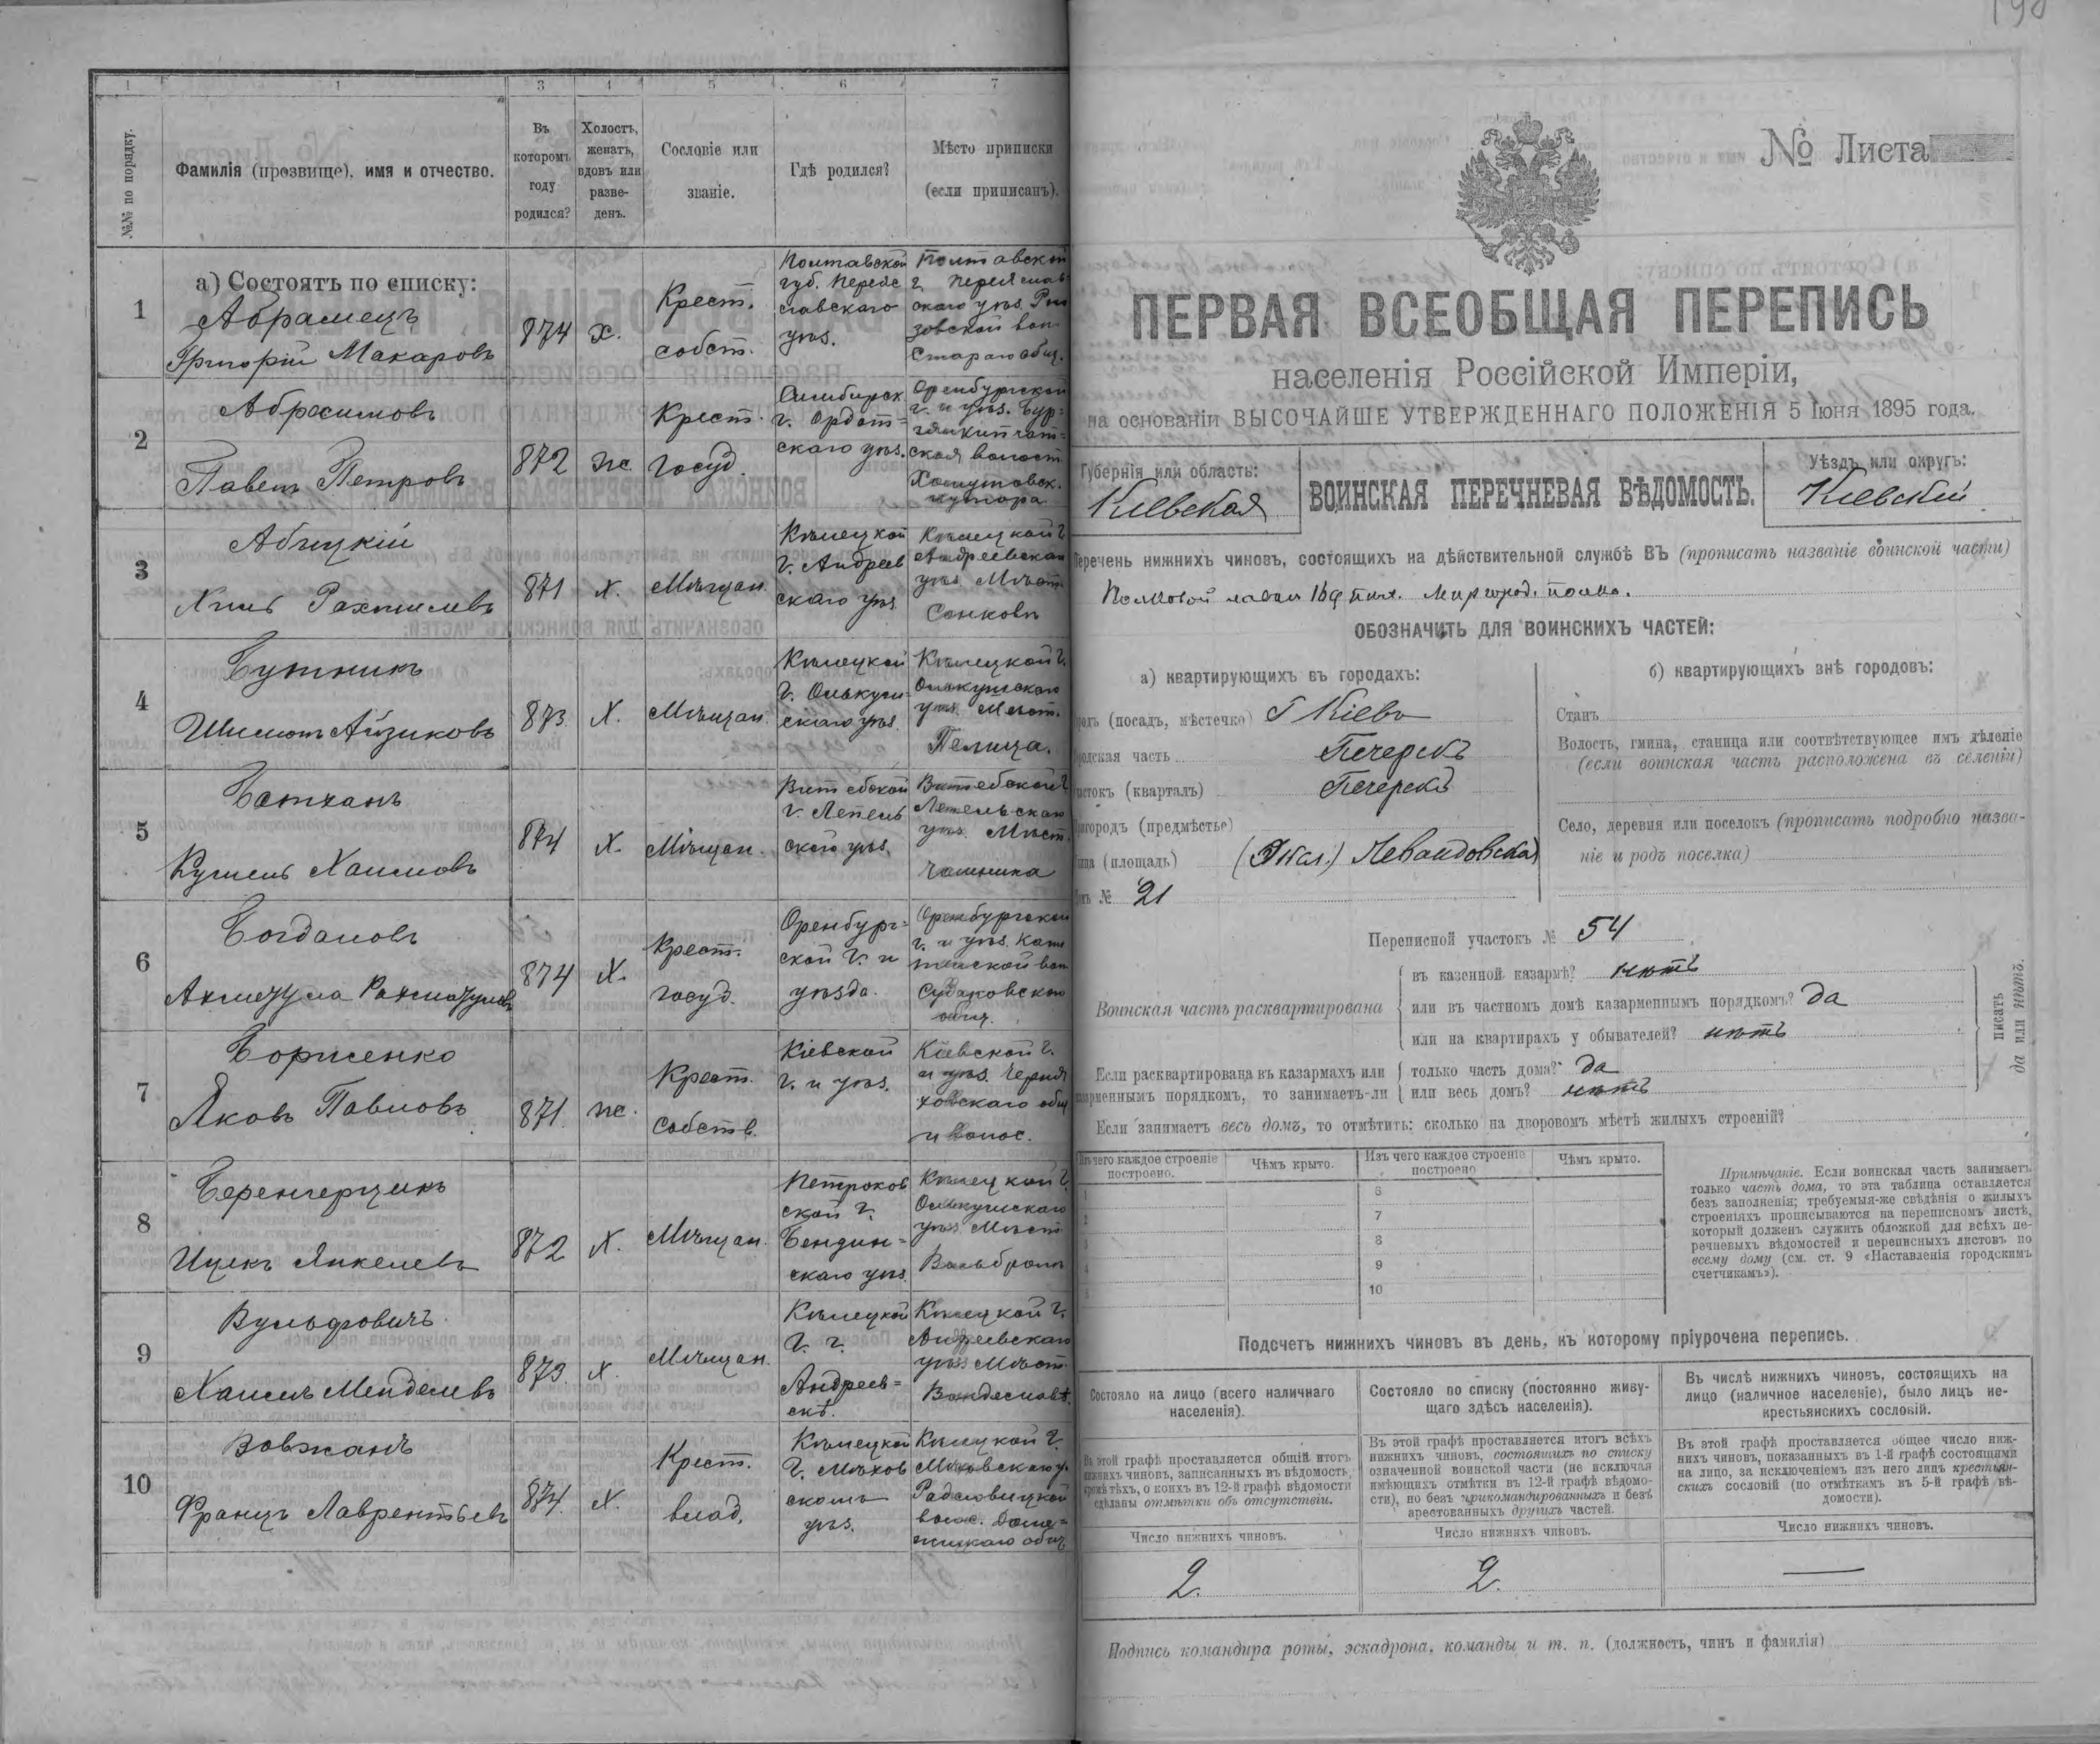 1
1
3
4
5
6
7
№№ по порядку.
Фамилія (прозвище), имя и отчество.
Въ
которомъ
году
родился?
Холостъ,
женатъ,
вдовъ или
разве-
денъ.
Сословіе или
званіе.
Гдѣ родился?
Мѣсто приписки
(если приписанъ).
а) Состоятъ по списку:
1
Абрамецъ
Григорій Макаровъ
874
х.
Крест.
собст.
Полтавской
губ. Переяс
славскаго
уѣз.
Полтавской
г. Переяслав
скаго уѣз.
зовской вол
Стараго общ.
2
Абрасимовъ
Павелъ Петровъ
872
ж.
Крест.
госуд.
Симбирск.
г. Ордат=
скаго уѣз.
Оренбургской
г. и уѣз. Бур=
ская волост.
хутора
3
Абицкій
Рахмилевъ
871
х.
Мѣщан.
Кѣлецкой
г. Андреев
скаго уѣз.
Кѣлецкой г.
Андреевскаго
уѣз. Мѣст.
Сонковъ
4
Бутникъ
Айзиковъ
873.
х.
Мѣщан.
Кѣлецкой
г. Олькуш=
скаго уѣз.
Кѣлецкой г.
Олькушскаго
уѣз. Мѣст.
Пелица.
5
Кушель Хаимовъ
874
х.
Мѣщан.
Витебской
г. Лепель
скаго уѣз.
Витебской г.
Лепельскаго
уѣз. Мѣст.
Чашника
6
Богдановъ
874
х.
Крест.
госуд.
Оренбург=
ской г. и
уѣзда.
Оренбургской
г. и уѣз.
общ.
7
Борисенко
Яковъ Павловъ
871.
ж.
Крест.
Собств.
Кіевской
г. и уѣз.
Кіевской г.
и уѣз. Черня
ховскаго общ
и волос.
8
Беренгерцикъ
Ицекъ Янкелевъ
872
х.
Мѣщан.
Петроков
ской г.
Бендин=
скаго уѣз.
Кѣлецкой г.
Олькушскаго
уѣз. Мѣст.
Вольбромъ
9
Вульфовичъ
Менделевъ
873.
х.
Мѣщан.
Кѣлецкой
г. г.
Андреев=
скѣ.
Кѣлецкой г.
Андреевскаго
уѣз. Мѣст.
10
Вовжанъ
Францъ Лаврентьевъ
874.
х.
Крест.
влад.
Кѣлецкой
г. Мѣхов
скомъ
уѣз.
Кѣлецкой г.
Мѣховскаго у.
волос.
общ.
198
№ Листа
ПЕРВАЯ ВСЕОБЩАЯ ПЕРЕПИСЬ
населенія Россійской Имперіи,
на основаніи ВЫСОЧАЙШЕ УТВЕРЖДЕННАГО ПОЛОЖЕНІЯ 5 Іюня 1895 года.
Губернія или область:
Кіевская
ВОИНСКАЯ ПЕРЕЧНЕВАЯ ВѢДОМОСТЬ.
Уѣздъ или округъ:
Кіевскій
Перечень нижнихъ чиновъ, состоящихъ на дѣйствительной службѣ ВЪ (прописать названіе воинской части)
Миргород. полка.
ОБОЗНАЧИТЬ ДЛЯ ВОИНСКИХЪ ЧАСТЕЙ:
а) квартирующихъ въ городахъ:
б) квартирующихъ внѣ городовъ:
(посадъ, мѣстечко) Г Кіевъ
часть Печерскъ
(кварталъ) Печерскъ
(предмѣстье)
(площадь) Левандовская
№ 21
Станъ
Волость, гмина, станица или соотвѣтствующее имъ дѣленіе
(если воинская часть расположена въ селеніи)
Село, деревня или поселокъ (прописать подробно назва-
ніе и родъ поселка)
Переписной участокъ № 54
Воинская часть расквартирована
въ казенной казармѣ? нѣтъ
или въ частномъ домѣ казарменнымъ порядкомъ? да
или на квартирахъ у обывателей? нѣтъ
Если расквартирована въ казармахъ или
казарменнымъ порядкомъ, то занимаетъ-ли
только часть дома? да
или весь домъ? нѣтъ
писать
да или нѣтъ.
Если занимаетъ весь домъ, то отмѣтить: сколько на дворовомъ мѣстѣ жилыхъ строеній?
Изъ чего каждое строеніе
построено.
Чѣмъ крыто.
Изъ чего каждое строеніе
построено
Чѣмъ крыто.
1
2
3
4
5
6
7
8
9
10
Примѣчаніе. Если воинская часть занимаетъ
только часть дома, то эта таблица оставляется
безъ заполненія; требуемыя-же свѣдѣнія о жилыхъ
строеніяхъ прописываются на переписномъ листѣ,
который долженъ служить обложкой для всѣхъ пе-
речневыхъ вѣдомостей и переписныхъ листовъ по
всему дому (см. ст. 9 «Наставленія городскимъ
счетчикамъ»).
Подсчетъ нижнихъ чиновъ въ день, къ которому пріурочена перепись.
Состояло на лицо (всего наличнаго
населенія).
Состояло по списку (постоянно живу-
щаго здѣсь населенія).
Въ числѣ нижнихъ чиновъ, состоящихъ на
лицо (наличное населеніе), было лицъ не-
крестьянскихъ сословій.
Въ этой графѣ проставляется общій итогъ
нижнихъ чиновъ, записанныхъ въ вѣдомость,
кромѣ тѣхъ, о коихъ въ 12-й графѣ вѣдомости
сдѣланы отмѣтки объ отсутствіи.
Въ этой графѣ проставляется итогъ всѣхъ
нижнихъ чиновъ, состоящихъ по списку
означенной воинской части (не исключая
имѣющихъ отмѣтки въ 12-й графѣ вѣдомо-
сти), но безъ прикомандированныхъ и безъ
арестованныхъ другихъ частей.
Въ этой графѣ проставляется общее число ниж-
нихъ чиновъ, показанныхъ въ 1-й графѣ состоящими
на лицо, за исключеніемъ изъ него лицъ крестьян-
скихъ сословій (по отмѣткамъ въ 5-й графѣ вѣ-
домости).
Число нижнихъ чиновъ.
Число нижнихъ чиновъ.
Число нижнихъ чиновъ.
2.
2.
—
Подпись командира роты, эскадрона, команды и т. п. (должность, чинъ и фамилія)